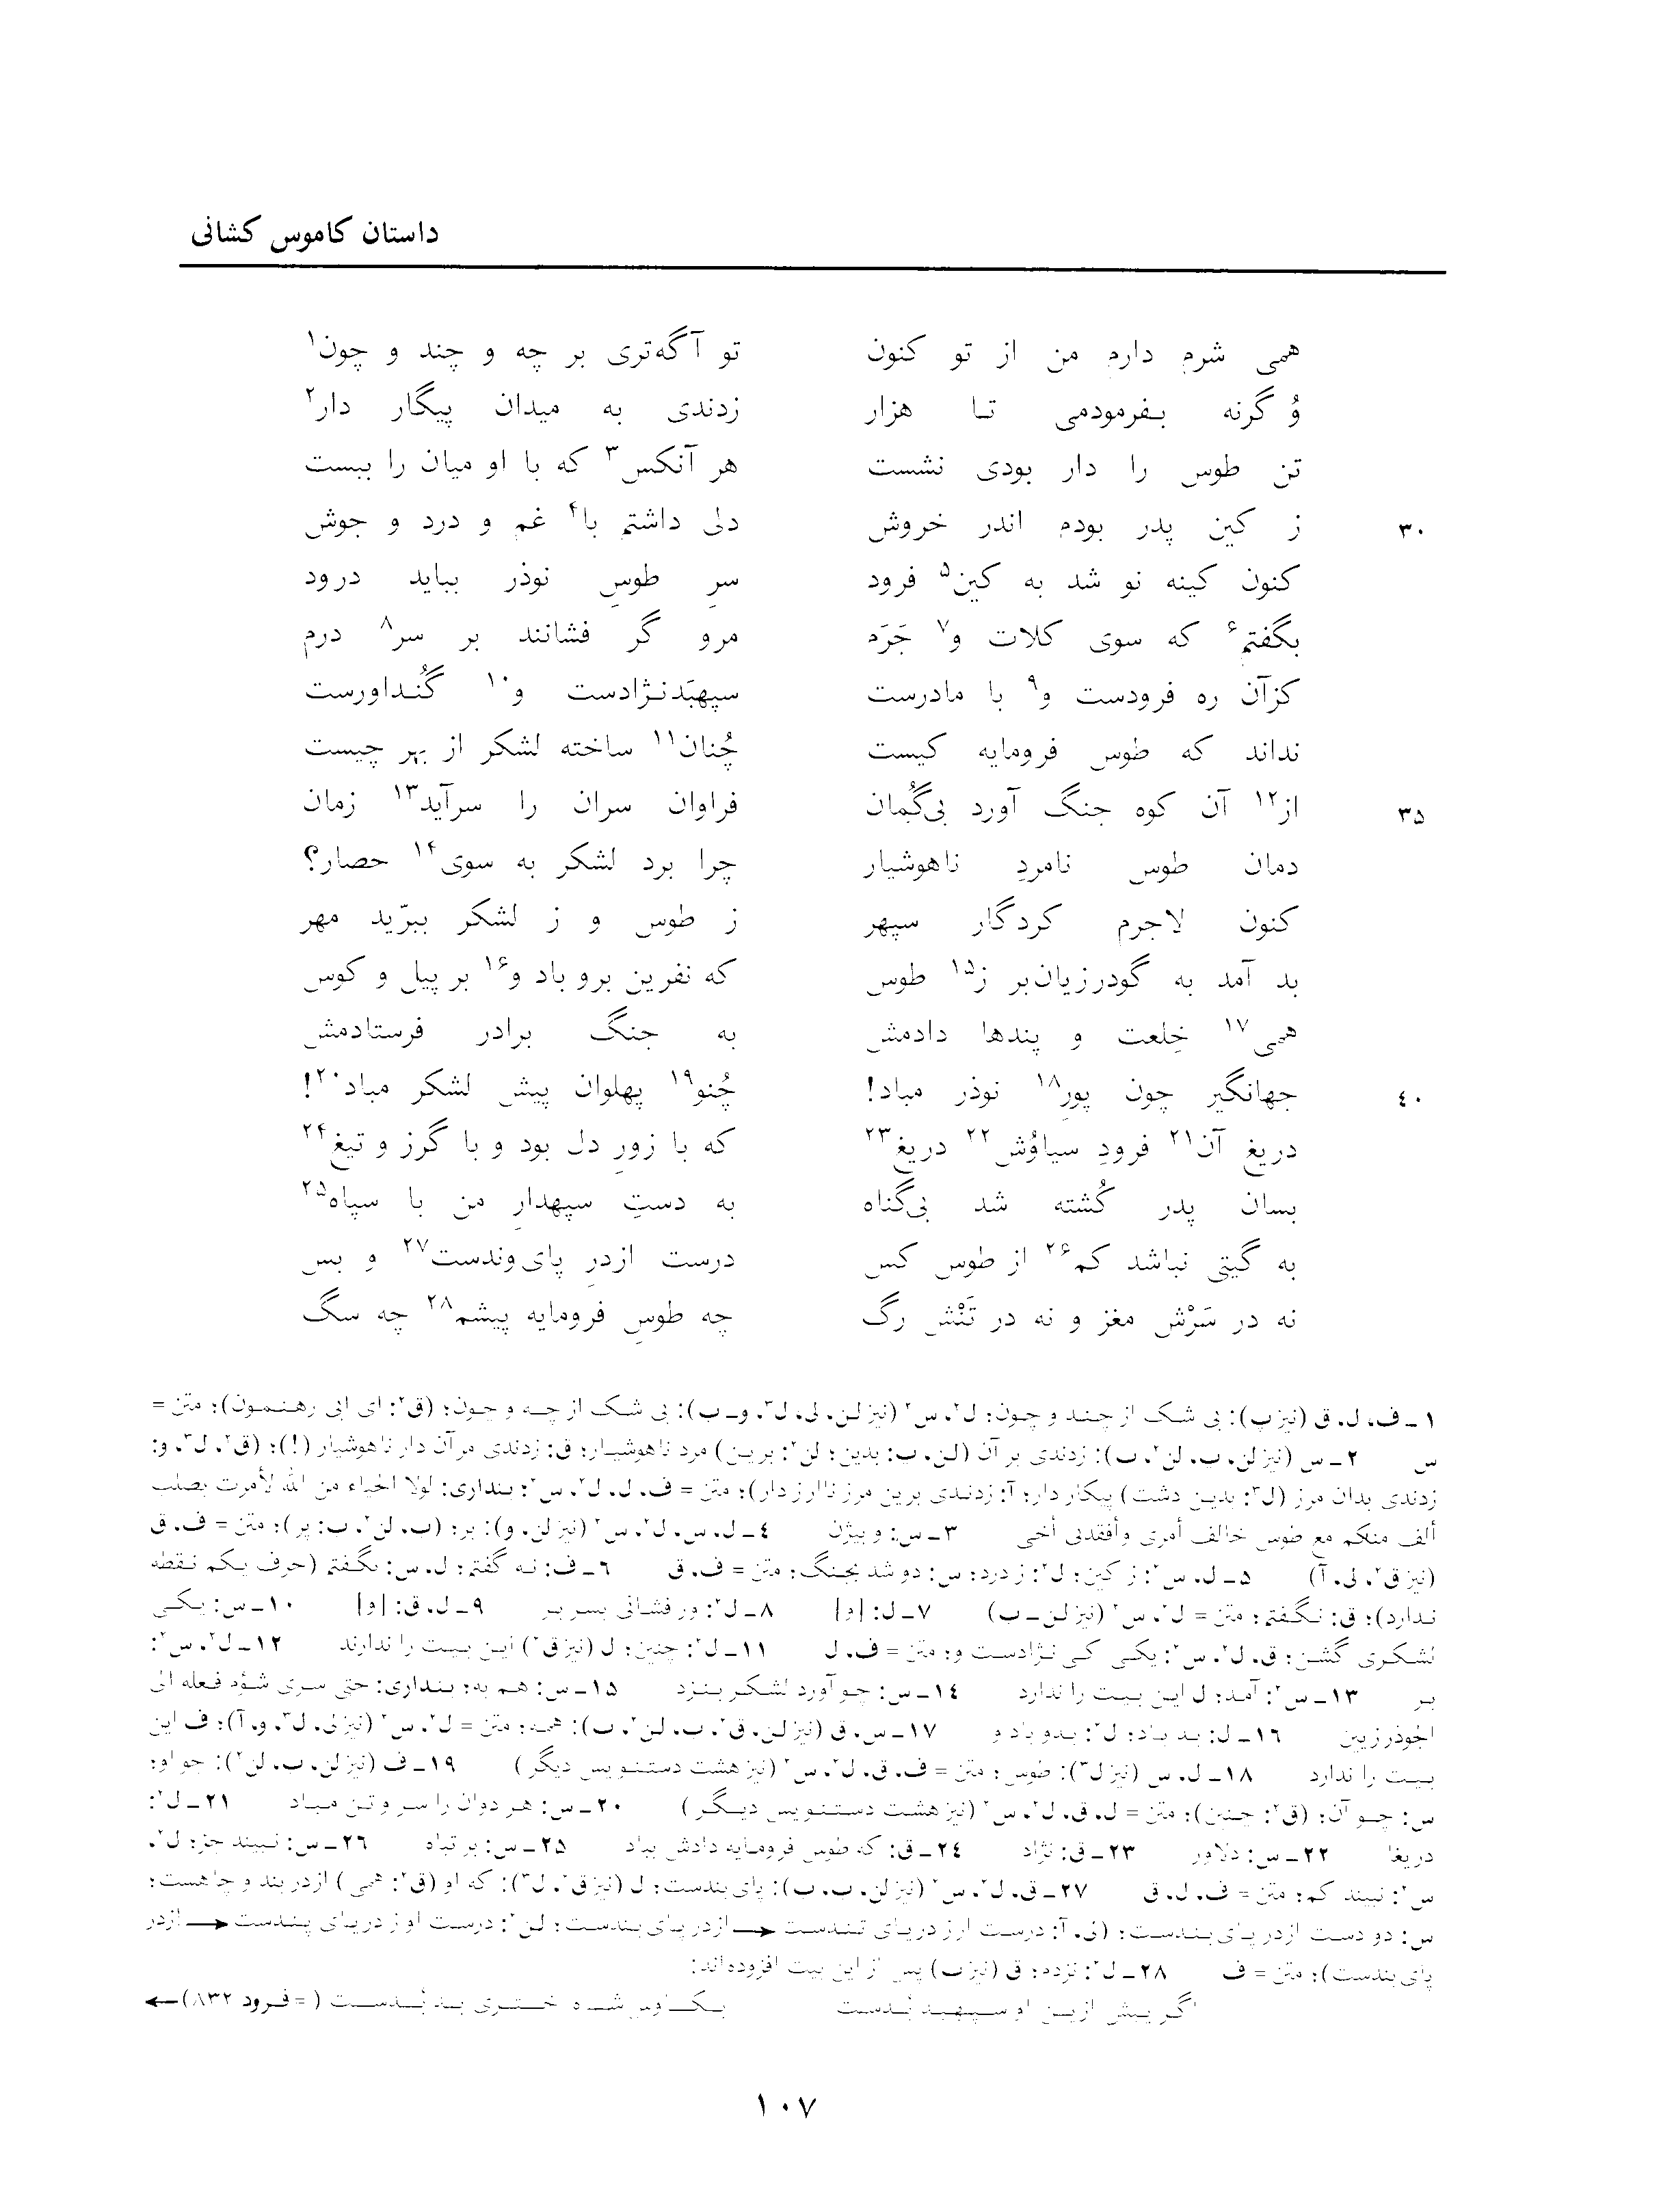 داستان کاموس کشانی
همی شرم دارم من از تو کنون تو آگه‌تری بر چه و چند و چون۱
وُ گرنه بفرمودمی تا هزار زدندی به میدان پیگار دار۲
تن طوس را دار بودی نشست هر آنکس۳ که با او میان را ببست
۳۰ ز کین پدر بودم اندر خروش دلی داشتم با۴ غم و درد و جوش
کنون کینه نو شد به کین۵ فرود سرِ طوسِ نوذر بباید درود
بگفتم۶ که سوی کلات و۷ جَرَم مرو گر فشانند بر سر۸ درم
کزآن ره فرودست و۹ با مادرست سپهبَدنژادست و۱۰ گُنداورست
نداند که طوس فرومایه کیست چُنان۱۱ ساخته لشکر از بهر چیست
۳۵ از۱۲ آن کوه جنگ آورد بی‌گُمان فراوان سران را سرآید۱۳ زمان
دمان طوس نامردِ ناهوشیار چرا برد لشکر به سوی۱۴ حصار؟
کنون لاجرم کردگار سپهر ز طوس و ز لشکر ببرّید مهر
بد آمد به گودرزیان‌بر ز۱۵ طوس که نفرین برو باد و۱۶ بر پیل و کوس
همی۱۷ خِلعت و پندها دادمش به جنگ برادر فرستادمش
۴۰ جهانگیر چون پورِ۱۸ نوذر مباد! چُنو۱۹ پهلوان پیش لشکر مباد۲۰!
دریغ آن۲۱ فرودِ سیاوُش۲۲ دریغ۲۳ که با زورِ دل بود و با گرز و تیغ۲۴
بسان پدر کُشته شد بی‌گناه به دستِ سپهدارِ من با سپاه۲۵
به گیتی نباشد کم۲۶ از طوس کس درست ازدرِ پای‌وندست۲۷ و بس
نه در سَرْش مغز و نه در تَنْش رگ چه طوسِ فرومایه پیشم۲۸ چه سگ
۱ـ ف، ل، ق (نیز پ): بی شک از چند و چون؛ ل۲، س۲ (نیز لن، لی، ل۳، و ـ ب): بی شک از چه و چون؛ (ق۲: ای ابی رهنمون)؛ متن =
س ۲ـ س (نیز لن، پ، لن۲، ب): زدندی بر آن (لن، ب: بدین؛ لن۲: برین) مرد ناهوشیار؛ ق: زدندی مر آن دار ناهوشیار (!)؛ (ق۲، ل۳، و:
زدندی بدان مرز (ل۳: بدین دشت) پیکار دار؛ آ: زدندی برین مرز ناارز دار)؛ متن = ف، ل، ل۲، س۲؛ بنداری: لولا الحیاء من الله لأمرت بصلب
ألف منکم مع طوس خالف أمری وأفقدنی أخی ۳ـ س: و بیژن ۴ـ ل، س، ل۲، س۲ (نیز لن، و): بر؛ (پ، لن۲، ب: پر)؛ متن = ف، ق
(نیز ق۲، لی، آ) ۵ـ ل، س۲: ز کین؛ ل۲: ز درد؛ س: دو شد بجنگ؛ متن = ف، ق ۶ـ ف: نه گفتم؛ ل، س: نگفتم (حرف یکم نقطه
ندارد)؛ ق: نگفتم؛ متن = ل۲، س۲ (نیز لن ـ ب) ۷ـ ل: [و] ۸ـ ل۲: ور فشانی بسر بر ۹ـ ل، ق: [و] ۱۰ـ س: یکی
لشکری گشن؛ ق، ل۲، س۲: یکی کی نژادست و؛ متن = ف، ل ۱۱ـ ل۲: چنین؛ ل (نیز ق۲) این بیت را ندارند ۱۲ـ ل۲، س۲:
بر ۱۳ـ س۲: آمد؛ ل این بیت را ندارد ۱۴ـ س: چو آورد لشکر بنزد ۱۵ـ س: هم به؛ بنداری: حتی سری شؤم فعله الی
الجوذرزیین ۱۶ـ ل: بد باد؛ ل۲: بدو باد و ۱۷ـ س، ق (نیز لن، ق۲، پ، لن۲، ب): همه؛ متن = ل۲، س۲ (نیز لی، ل۳، و، آ)؛ ف این
بیت را ندارد ۱۸ـ ل، س (نیز ل۳): طوس؛ متن = ف، ق، ل۲، س۲ (نیز هشت دستنویس دیگر) ۱۹ـ ف (نیز لن، پ، لن۲): چو او؛
س: چو آن؛ (ق۲: چنین)؛ متن = ل، ق، ل۲، س۲ (نیز هشت دستنویس دیگر) ۲۰ـ س: هر دوان را سر و تن مباد ۲۱ـ ل۲:
دریغا ۲۲ـ س: دلاور ۲۳ـ ق: نژاد ۲۴ـ ق: که طوس فرومایه دادش بباد ۲۵ـ س: بر تباه ۲۶ـ س: نبیند جز؛ ل۲،
س۲: نبیند کم؛ متن = ف، ل، ق ۲۷ـ ق، ل۲، س۲ (نیز لن، پ، ب): پای‌بندست؛ ل (نیز ق۲، ل۳): که او (ق۲: همی) ازدر بند و چاهست؛
س: دو دست ازدر پای‌بندست؛ (لی، آ: درست ارز دریای تندست ← ازدر پای‌بندست؛ لن۲: درست او ز دریای پندست ← ازدر
پای‌بندست)؛ متن = ف ۲۸ـ ل۲: نزدم؛ ق (نیز ب) پس از این بیت افزوده‌اند:
اگر پیش ازین او سپهبد بُدست بکاوس شه اختری بد بُدست (= فرود ۸۳۲) ←
۱۰۷